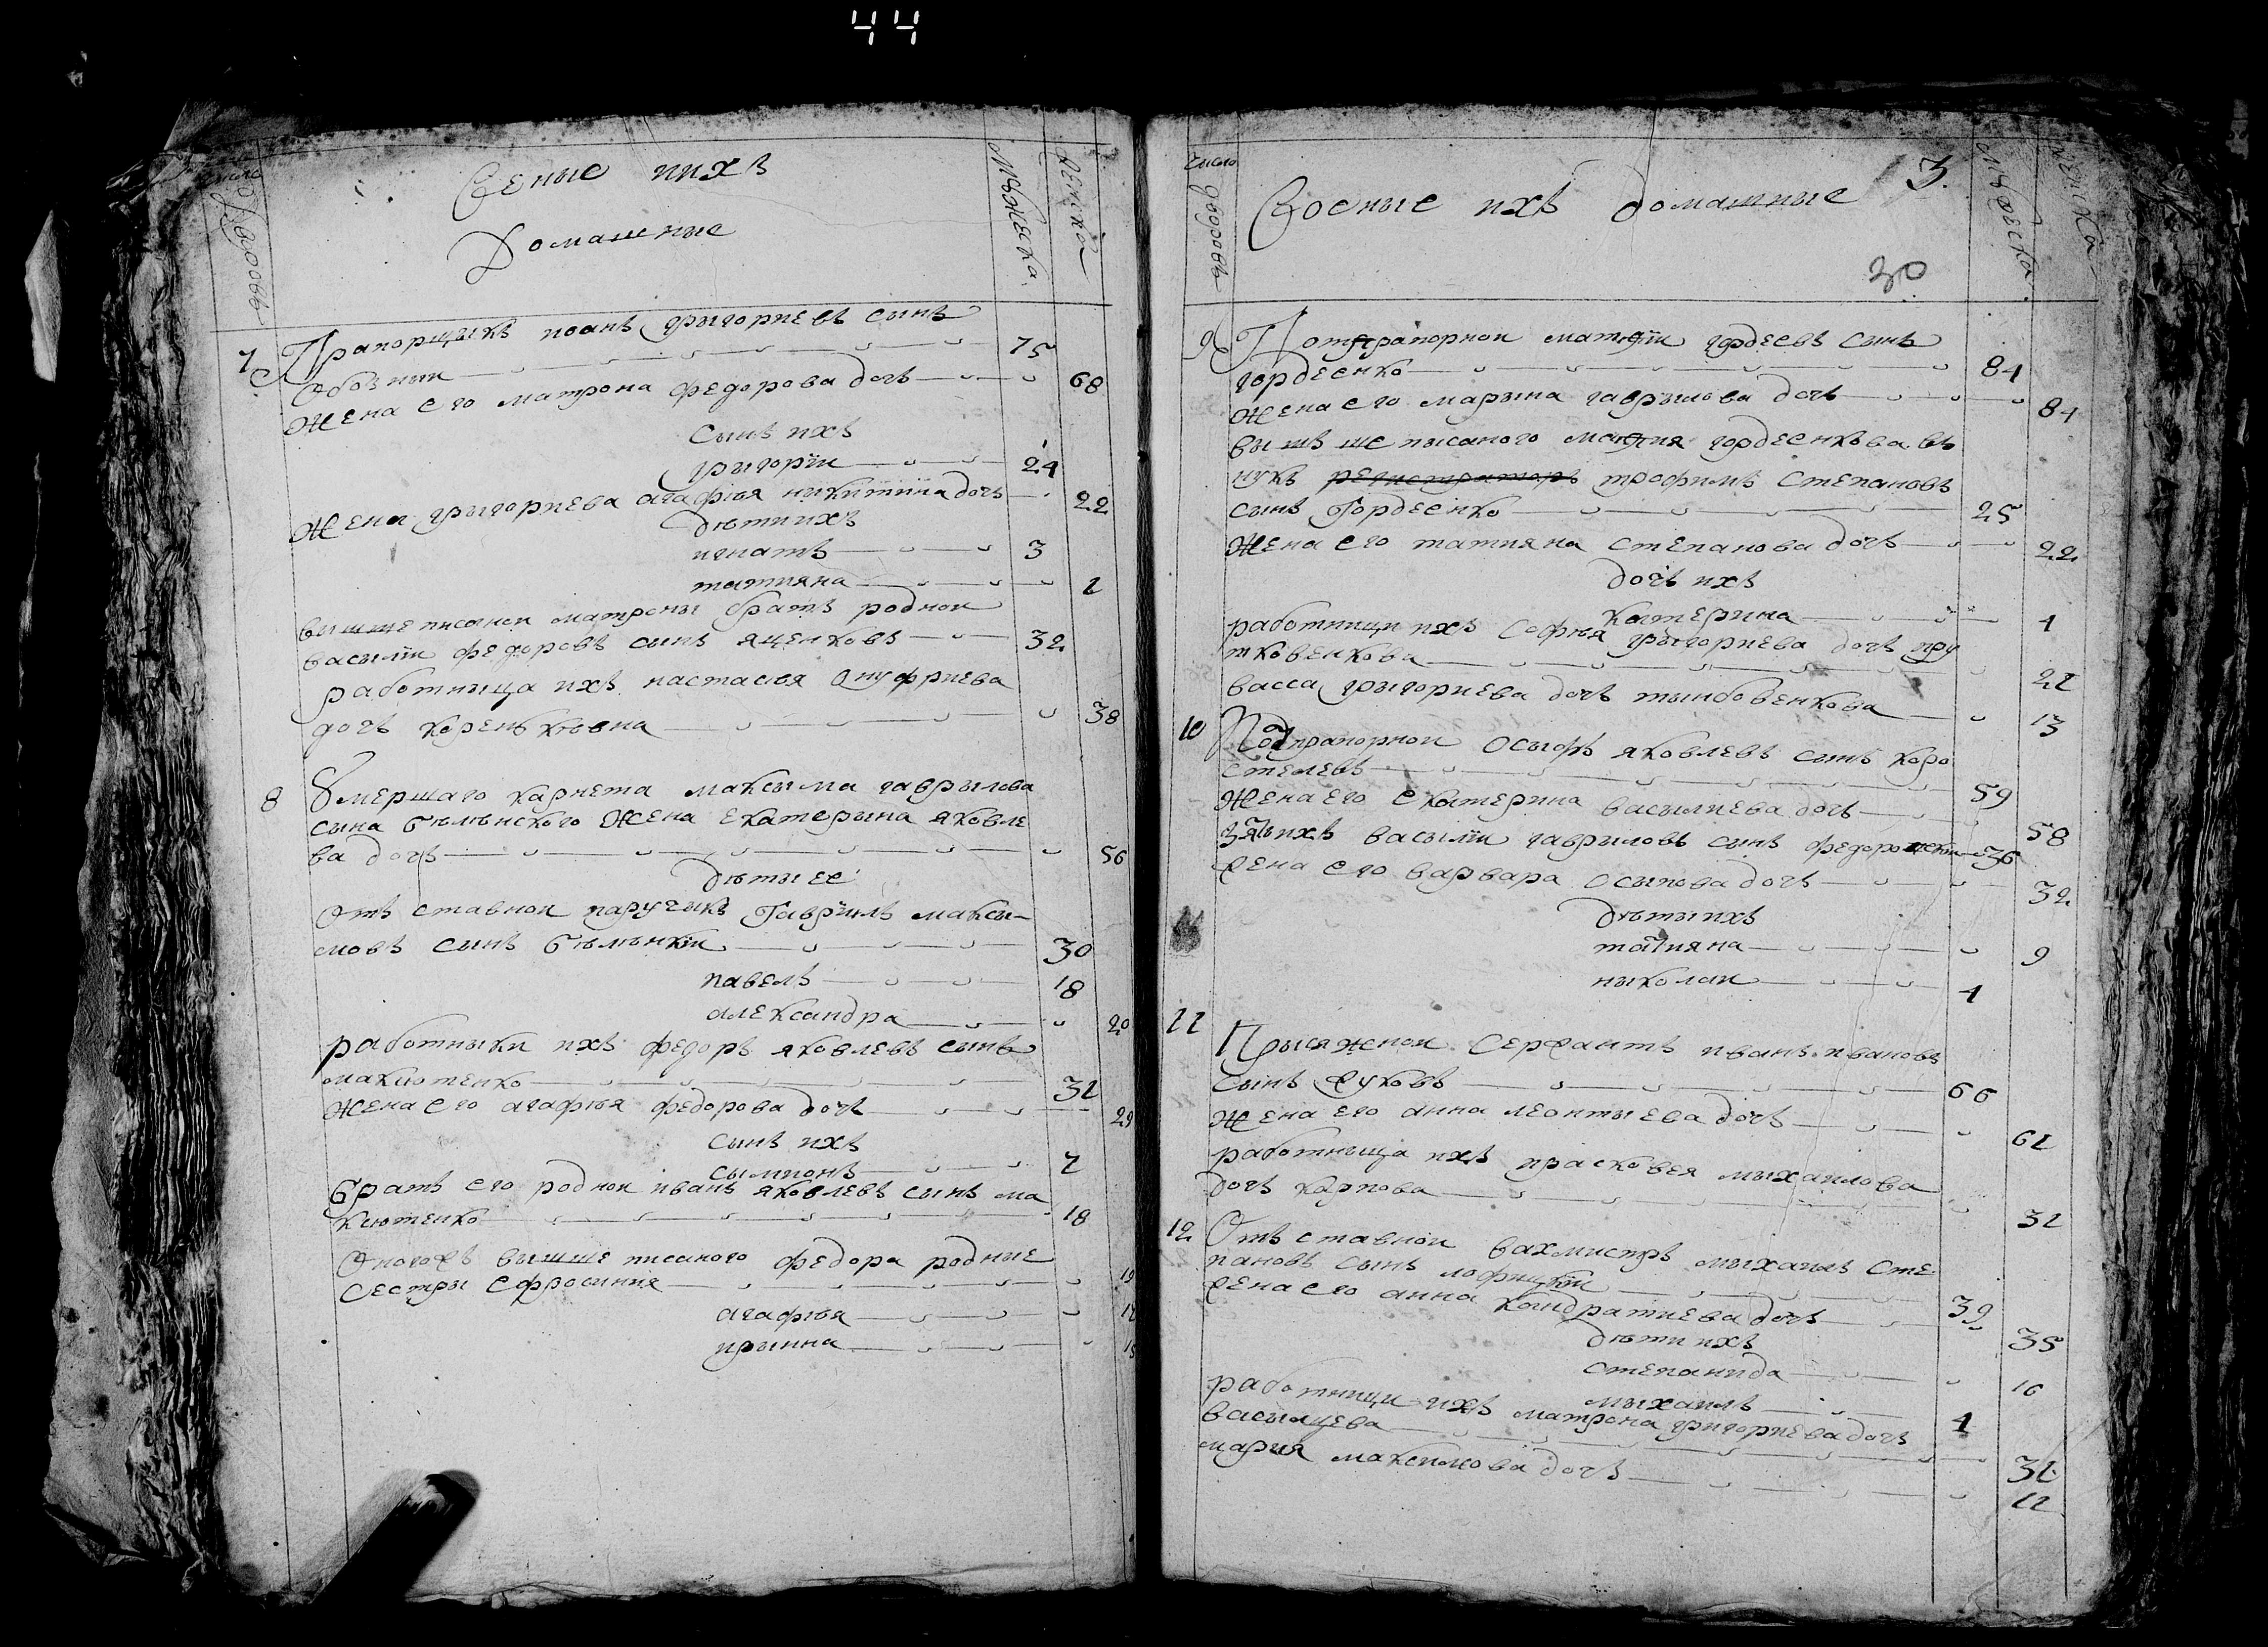 44
число дворовъ
Военые и ихъ
Домашние
Мужеска
Женска
7 Прапорщыкъ иоанъ григориевъ сынъ
75
Жена его матрона федорова дочь 68
сынъ ихъ
григорїи 24
Жена григориева агафия никитина дочь 22
дѣти ихъ
игнатъ 3
татияна 1
вышше писаной матроны братъ родной
васылїи федоровъ сынъ яценковъ 32
работныца ихъ настасия онуфриева
дочь 38
8 Умершаго карнета максыма гаврылова
сына бѣлѣнского жена екатерына яковле
ва дочь 56
дѣты ее
Отъ ставной паручыкъ Гаврїилъ максы-
мовъ сынъ бѣлѣнкїи 30
павелъ 18
александра 20
работныки ихъ федоръ яковлевъ сынъ
макиотенко 31
Жена его агафия федорова дочь 29
сынъ ихъ
сымионъ 7
братъ его родной иванъ яковлевъ сынъ ма
киотенко 18
Оногожъ вышше писаного федора родные
сестры ефросиния 19
агафия 17
ирынна 15
число дворовъ
Военые ихъ домашние
13.
30
Мужеска
женска
9 Потпрапорной матфїи гордеевъ сынъ
гордеенко 84
Жена его марына гаврылова дочь 84
вышъ ше пысаного матфия гордеенкова въ
нукъ регистраторъ трофимъ степановъ
сынъ Гордеенко 25
Жена его татияна степанова дочь 22
дочь ихъ
катерина 1
работници ихъ софия григориева дочь пру
тковенкова 21
васса григориева дочь тынбовенкова 13
10 Подпрапорной осыфъ яковлевъ сынъ коро
стелевъ 59
Жена его екатерина васылиева дочь 58
зять ихъ васылїи гавриловъ сынъ 36
Жена его варвара осыпова дочь 32
дѣты ихъ
татияна 9
ныколаи 4
11 Прысяжной сержантъ иванъ ивановъ
сынъ жуковъ 66
Жена его анна леонтыева дочь 61
работныца ихъ прасковея мыхаилова
дочь карпова 31
12 Отъ ставной вахмистръ мыхаилъ сте
пановъ сынъ лофицкїи 39
Жена его анна кондратиева дочь 35
дѣти ихъ
степанида 10
мыхаилъ 4
работници ихъ матрона григориева дочь
васылцева 31
мария максимова дочь 11